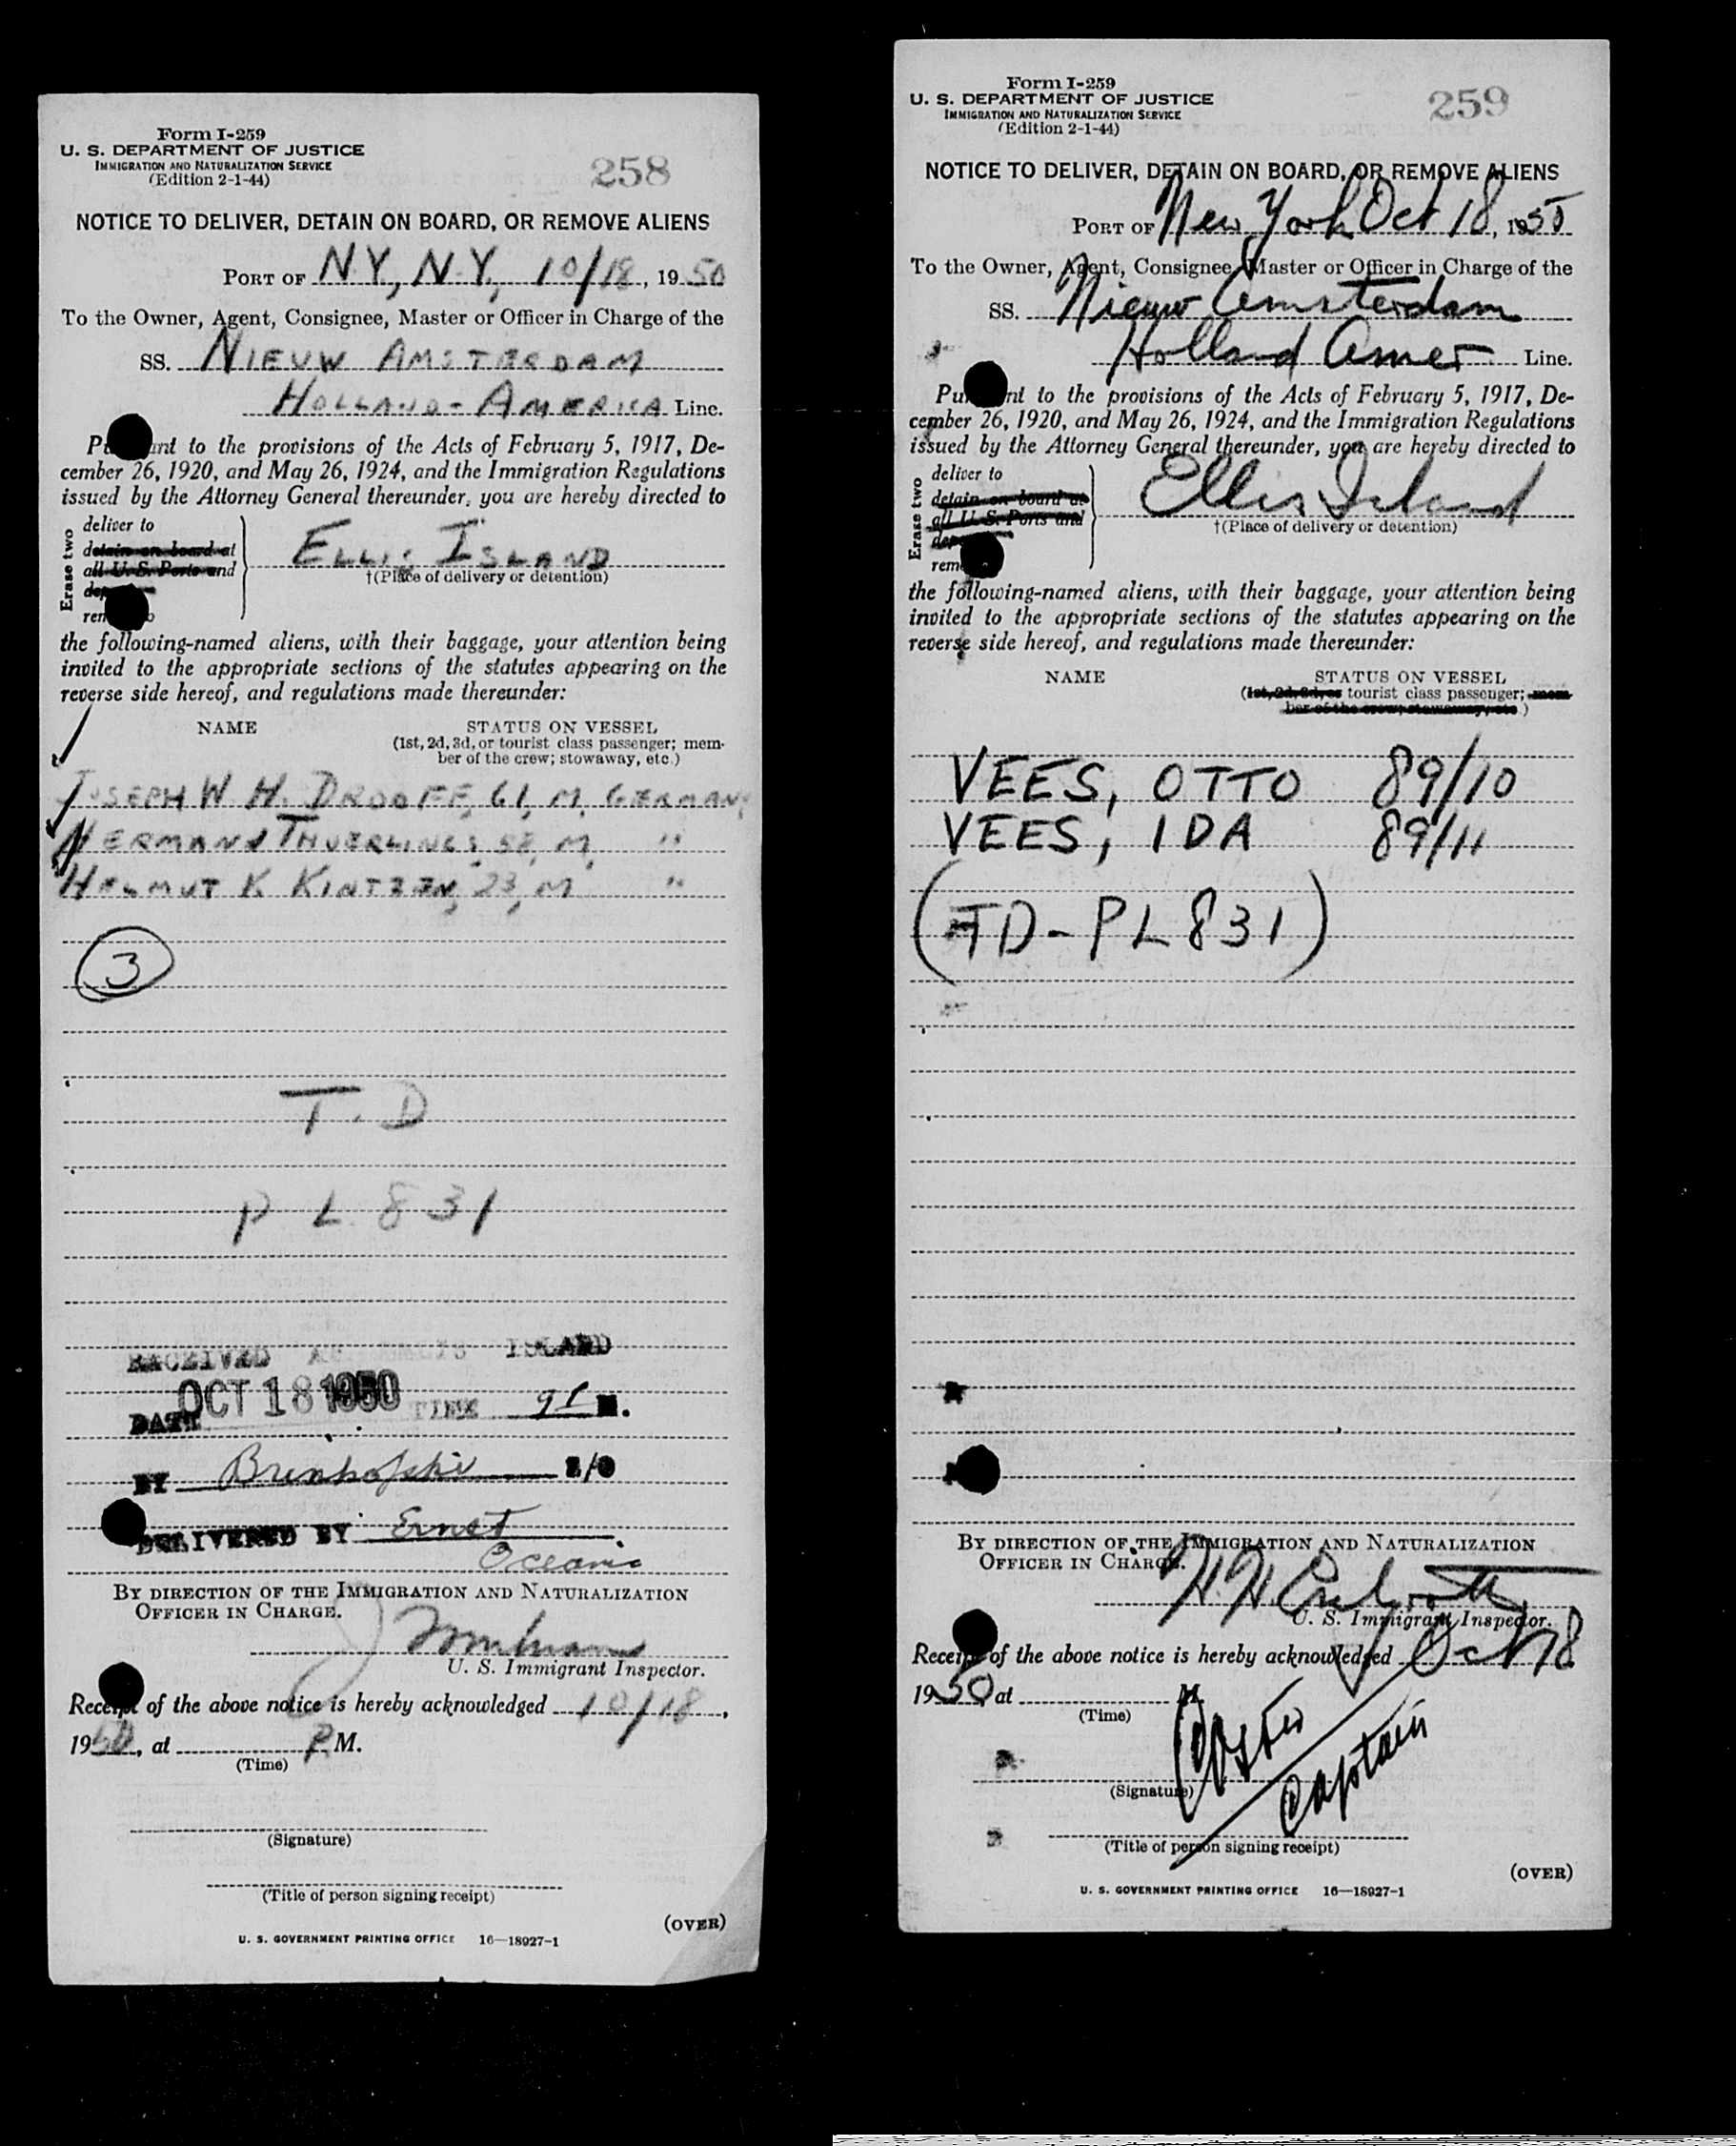 Form I-259
U. S. DEPARTMENT OF JUSTICE
IMMIGRATION AND NATURALIZATION SERVICE
(Edition 2-1-44)
258
NOTICE TO DELIVER, DETAIN ON BOARD, OR REMOVE ALIENS
PORT OF N.Y., N.Y., 10/18, 1950
To the Owner, Agent, Consignee, Master or Officer in Charge of the
SS. NIEUW AMSTERDAM
HOLLAND-AMERICA Line.
nt to the provisions of the Acts of February 5, 1917, De-
cember 26, 1920, and May 26, 1924, and the Immigration Regulations
issued by the Attorney General thereunder, you are hereby directed to
Erase two
deliver to
detain on board at
all U. S. Ports and
ELLIS ISLAND
†(Place of delivery or detention)
the following-named aliens, with their baggage, your attention being
invited to the appropriate sections of the statutes appearing on the
reverse side hereof, and regulations made thereunder:
NAME STATUS ON VESSEL
(1st, 2d, 3d, or tourist class passenger; mem-
ber of the crew; stowaway, etc.)
JOSEPH W. H. DROOFF, 61, M, GERMANY
HERMANN M, "
HELMUT K KINTZEN, 23, M "
3
T. D
P L 831
RECEIVED ISLAND
DATE OCT 18 1950 TIME M.
BY
DELIVERED BY Ernst
Oceanic
BY DIRECTION OF THE IMMIGRATION AND NATURALIZATION
OFFICER IN CHARGE.
U. S. Immigrant Inspector.
Receipt of the above notice is hereby acknowledged 10/18,
1950, at P.M.
(Time)
(Signature)
(Title of person signing receipt)
(OVER)
U. S. GOVERNMENT PRINTING OFFICE 16—18927-1
Form I-259
U. S. DEPARTMENT OF JUSTICE
IMMIGRATION AND NATURALIZATION SERVICE
(Edition 2-1-44)
259
NOTICE TO DELIVER, DETAIN ON BOARD, OR REMOVE ALIENS
PORT OF New York Oct 18, 1950
To the Owner, Agent, Consignee, Master or Officer in Charge of the
SS. Nieuw Amsterdam
Holland Amer Line.
nt to the provisions of the Acts of February 5, 1917, De-
cember 26, 1920, and May 26, 1924, and the Immigration Regulations
issued by the Attorney General thereunder, you are hereby directed to
Erase two
deliver to
detain on board at
all U. S. Ports and
Ellis Island
†(Place of delivery or detention)
the following-named aliens, with their baggage, your attention being
invited to the appropriate sections of the statutes appearing on the
reverse side hereof, and regulations made thereunder:
NAME STATUS ON VESSEL
(1st, 2d, 3d, or tourist class passenger; mem-
ber of the crew; stowaway, etc.)
VEES, OTTO 89/10
VEES, IDA 89/11
(TD-PL831)
BY DIRECTION OF THE IMMIGRATION AND NATURALIZATION
OFFICER IN CHARGE.
U. S. Immigrant Inspector.
Receipt of the above notice is hereby acknowledged Oct 18
1950 at M.
(Time)
(Signature)
Captain
(Title of person signing receipt)
(OVER)
U. S. GOVERNMENT PRINTING OFFICE 16—18927-1